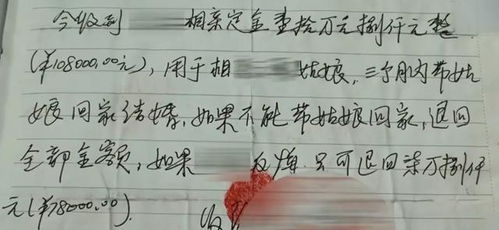 今收到 相亲定金壹拾万元捌仟元整
(¥108000.00元),用于相 姑娘,三个月内带姑
娘回家结婚,如果不能带姑娘回家,退回
全部金额,如果 反悔只可退回柒万捌仟
元(¥78000.00)
收